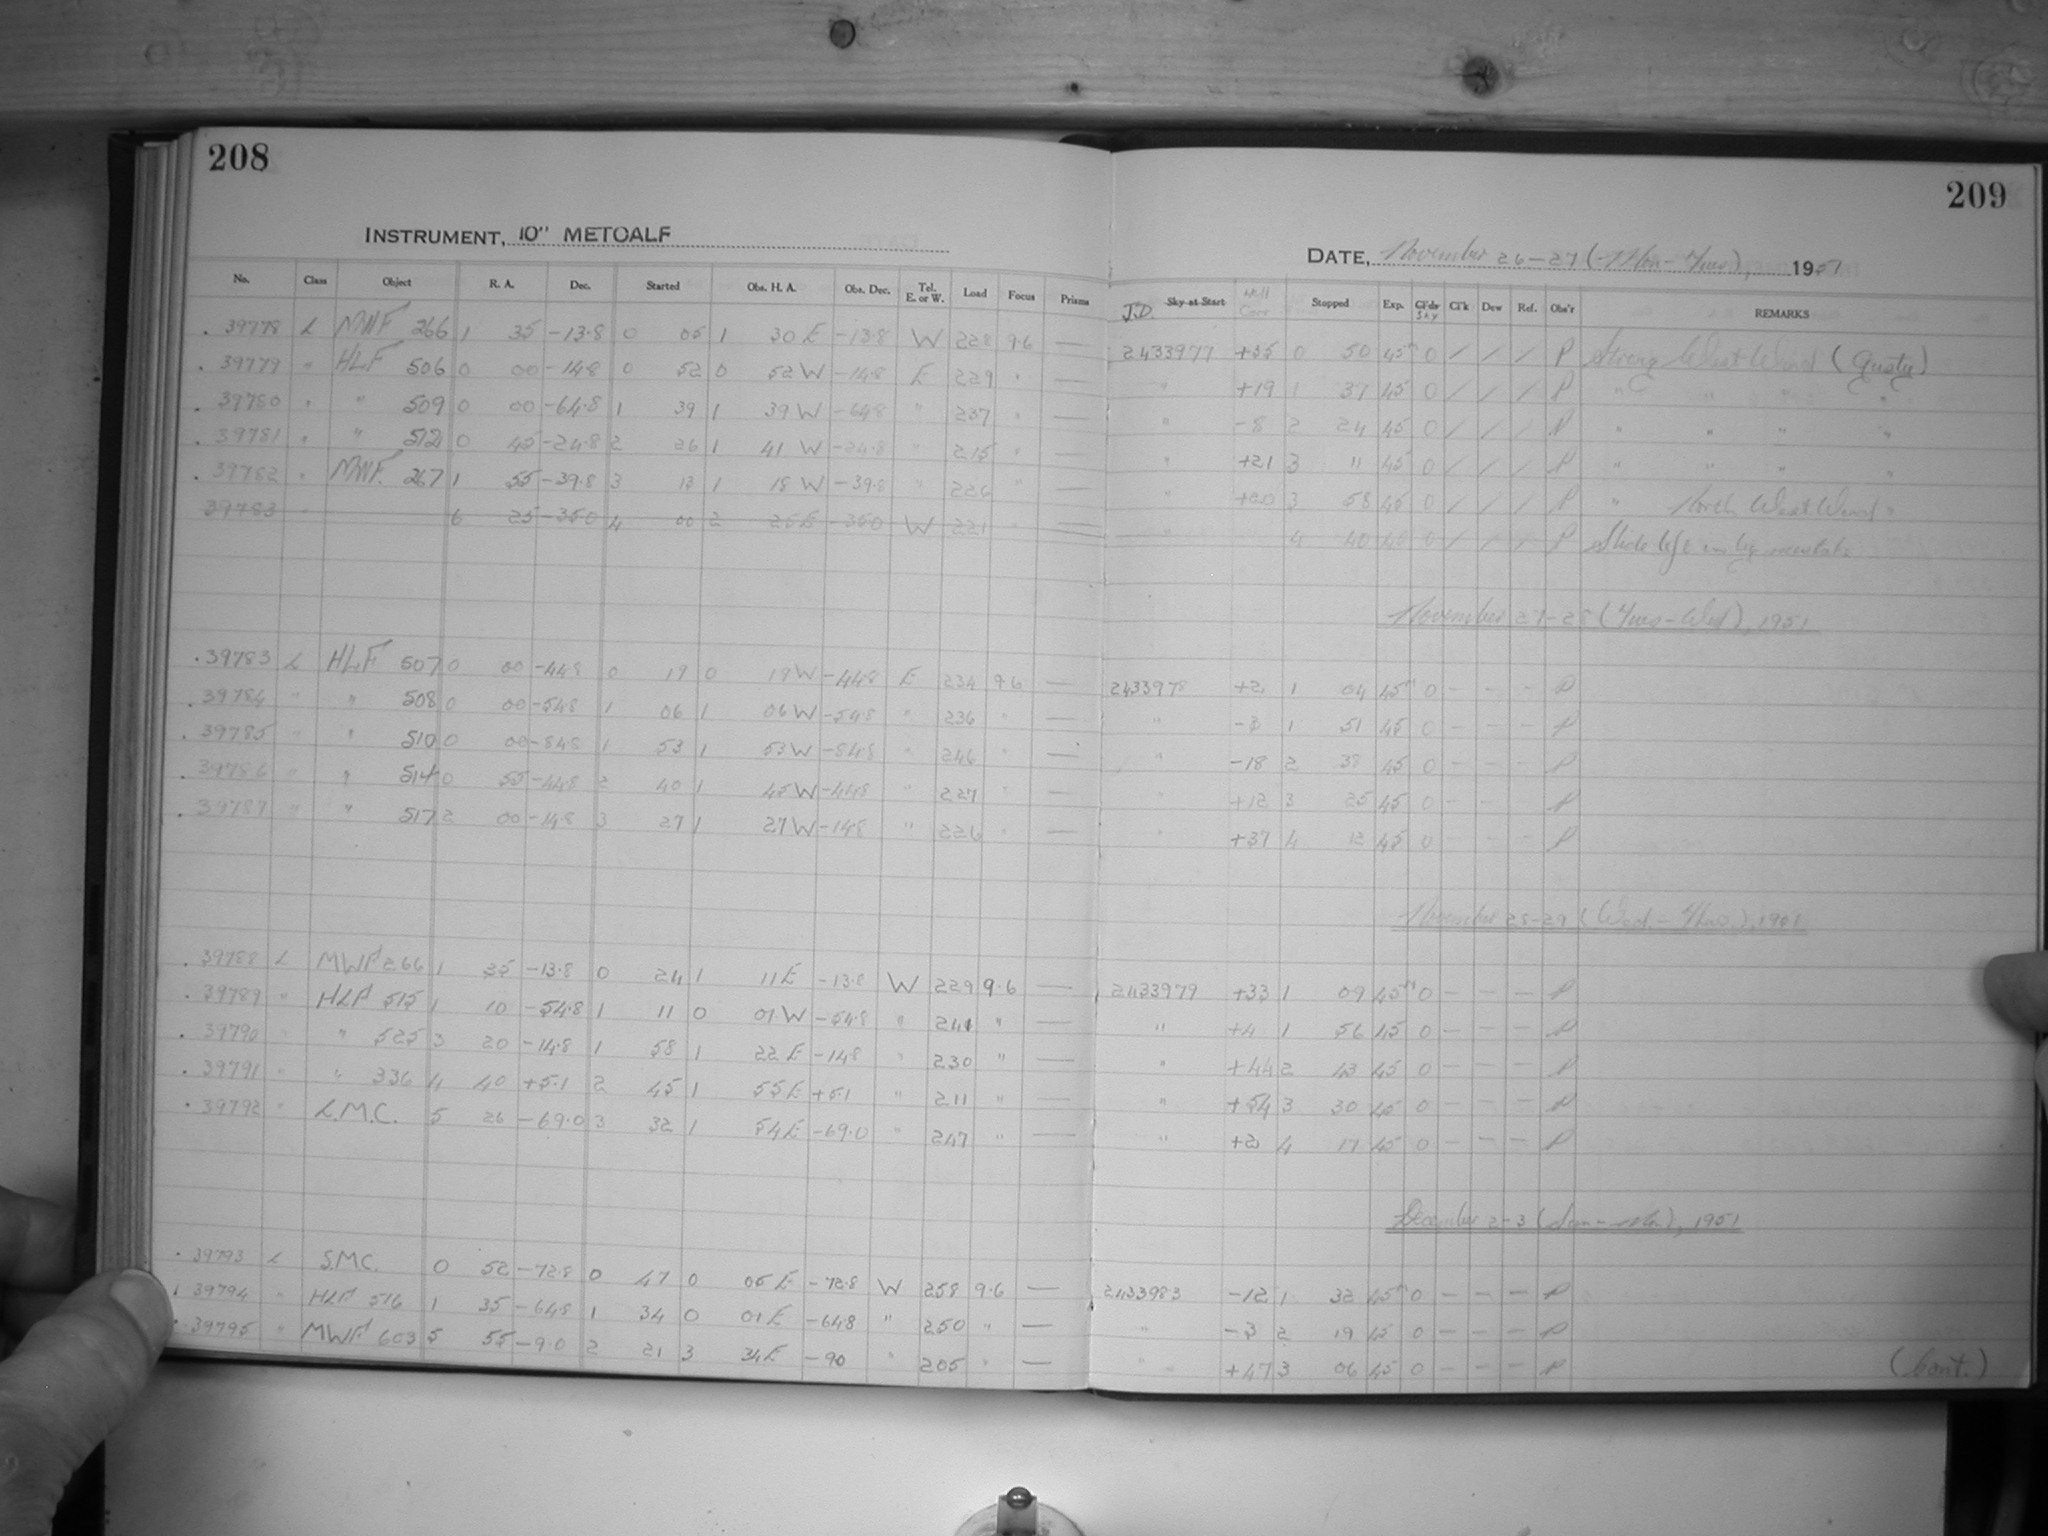 208
209
INSTRUMENT, 10" METCALF
DATE, November 26-27 (Mon-Tues), 1951
No. Class Object R. A. Dec. Started Obs. H. A. Obs. Dec. Tel. E. or W. Load Focus Prisms J.D. Sky-at-Start Hel Corr Stopped Exp. Cl'ds Sky Cl'k Dew Ref. Obs'r REMARKS
. 39778 L MWF 266 1 35 -13.8 0 05 1 30 E -13.8 W 228 9.6 — 2433977 +35 0 50 45m 0 / / / P Strong West Wind (Gusty)
. 39779 " HLF 506 0 00 -14.8 0 52 0 52 W -14.8 E 229 " — " +19 1 37 45 0 / / / P " " " "
. 39780 " " 509 0 00 -64.8 1 39 1 39 W -64.8 " 237 " — " -8 2 24 45 0 / / / P " " " "
. 39781 " " 512 0 45 -24.8 2 26 1 41 W -24.8 " 215 " — " +21 3 11 45 0 / / / P " " " "
. 39782 " MWF 267 1 55 -39.8 3 13 1 18 W -39.8 " 226 " — " +20 3 58 45 0 / / / P " North West Wind "
39783 " 6 25 -35.0 4 00 2 25 E -35.0 W 221 " — " 4 40 40 0 / / / P Slide left in by mistake
November 27-28 (Tues-Wed), 1951
. 39783 L HLF 507 0 00 -44.8 0 19 0 19 W -44.8 E 234 9.6 — 2433978 +2 1 04 45m 0 - - - P
. 39784 " " 508 0 00 -54.8 1 06 1 06 W -54.8 " 236 " — " -3 1 51 45 0 - - - P
. 39785 " " 510 0 00 -84.8 1 53 1 53 W -84.8 " 246 " — " -18 2 38 45 0 - - - P
. 39786 " " 514 0 55 -44.8 2 40 1 45 W -44.8 " 227 " — " +12 3 25 45 0 - - - P
. 39787 " " 517 2 00 -14.8 3 27 1 27 W -14.8 " 226 " — " +37 4 12 45 0 - - - P
November 28-29 (Wed.-Thur.), 1951
. 39788 L MWF 266 1 35 -13.8 0 24 1 11 E -13.8 W 229 9.6 — 2433979 +33 1 09 45m 0 - - - P
. 39789 " HLF 515 1 10 -54.8 1 11 0 01 W -54.8 " 241 " — " +4 1 56 45 0 - - - P
. 39790 " " 525 3 20 -14.8 1 58 1 22 E -14.8 " 230 " — " +44 2 43 45 0 - - - P
. 39791 " " 336 4 40 +5.1 2 45 1 55 E +5.1 " 211 " — " +54 3 30 45 0 - - - P
. 39792 " L.M.C. 5 26 -69.0 3 32 1 54 E -69.0 " 247 " — " +2 4 17 45 0 - - - P
December 2-3 (Sun-Mon.), 1951
. 39793 L S.M.C. 0 52 -72.8 0 47 0 05 E -72.8 W 258 9.6 — 2433983 -12 1 32 45m 0 - - - P
. 39794 " HLF 516 1 35 -64.8 1 34 0 01 E -64.8 " 250 " — " -3 2 19 45 0 - - - P
. 39795 " MWF 603 5 55 -9.0 2 21 3 34 E -90 " 205 " — " +47 3 06 45 0 - - - P (Cont.)